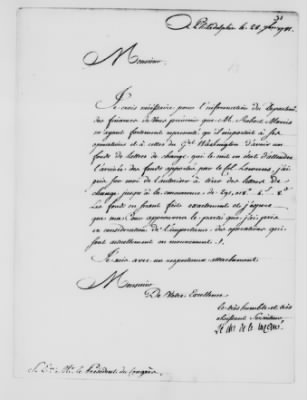 à Philadelphie le 24 7bre 1781.
Monsieur
Je crois nécessaire pour l'information du Departement
des finances de Vous prévenir que M. Robert Morris
m'ayant fortement représenté qu'il importait à ses
opérations et à celles du Gal Washington d'avoir un
fonds de lettres de change, qui le mit en état d'attendre
l'arrivée des fonds apportés par le Col. Laurens, j'ai
pris sur moi de l'autoriser à tirer des lettres de
change jusqu'à la concurrence de
Les fonds en seront faits exactement et j'espère
que ma Cour approuvera le parti que j'ai pris
en considération de l'importance des opérations qui
sont actuellement en mouvement.
Je suis avec un respectueux attachement.
Monsieur
De Votre Excellence
Le très humble et très
obéissant Serviteur
Le chr de la luzerne
S. E. Mr. le Président du Congrès.